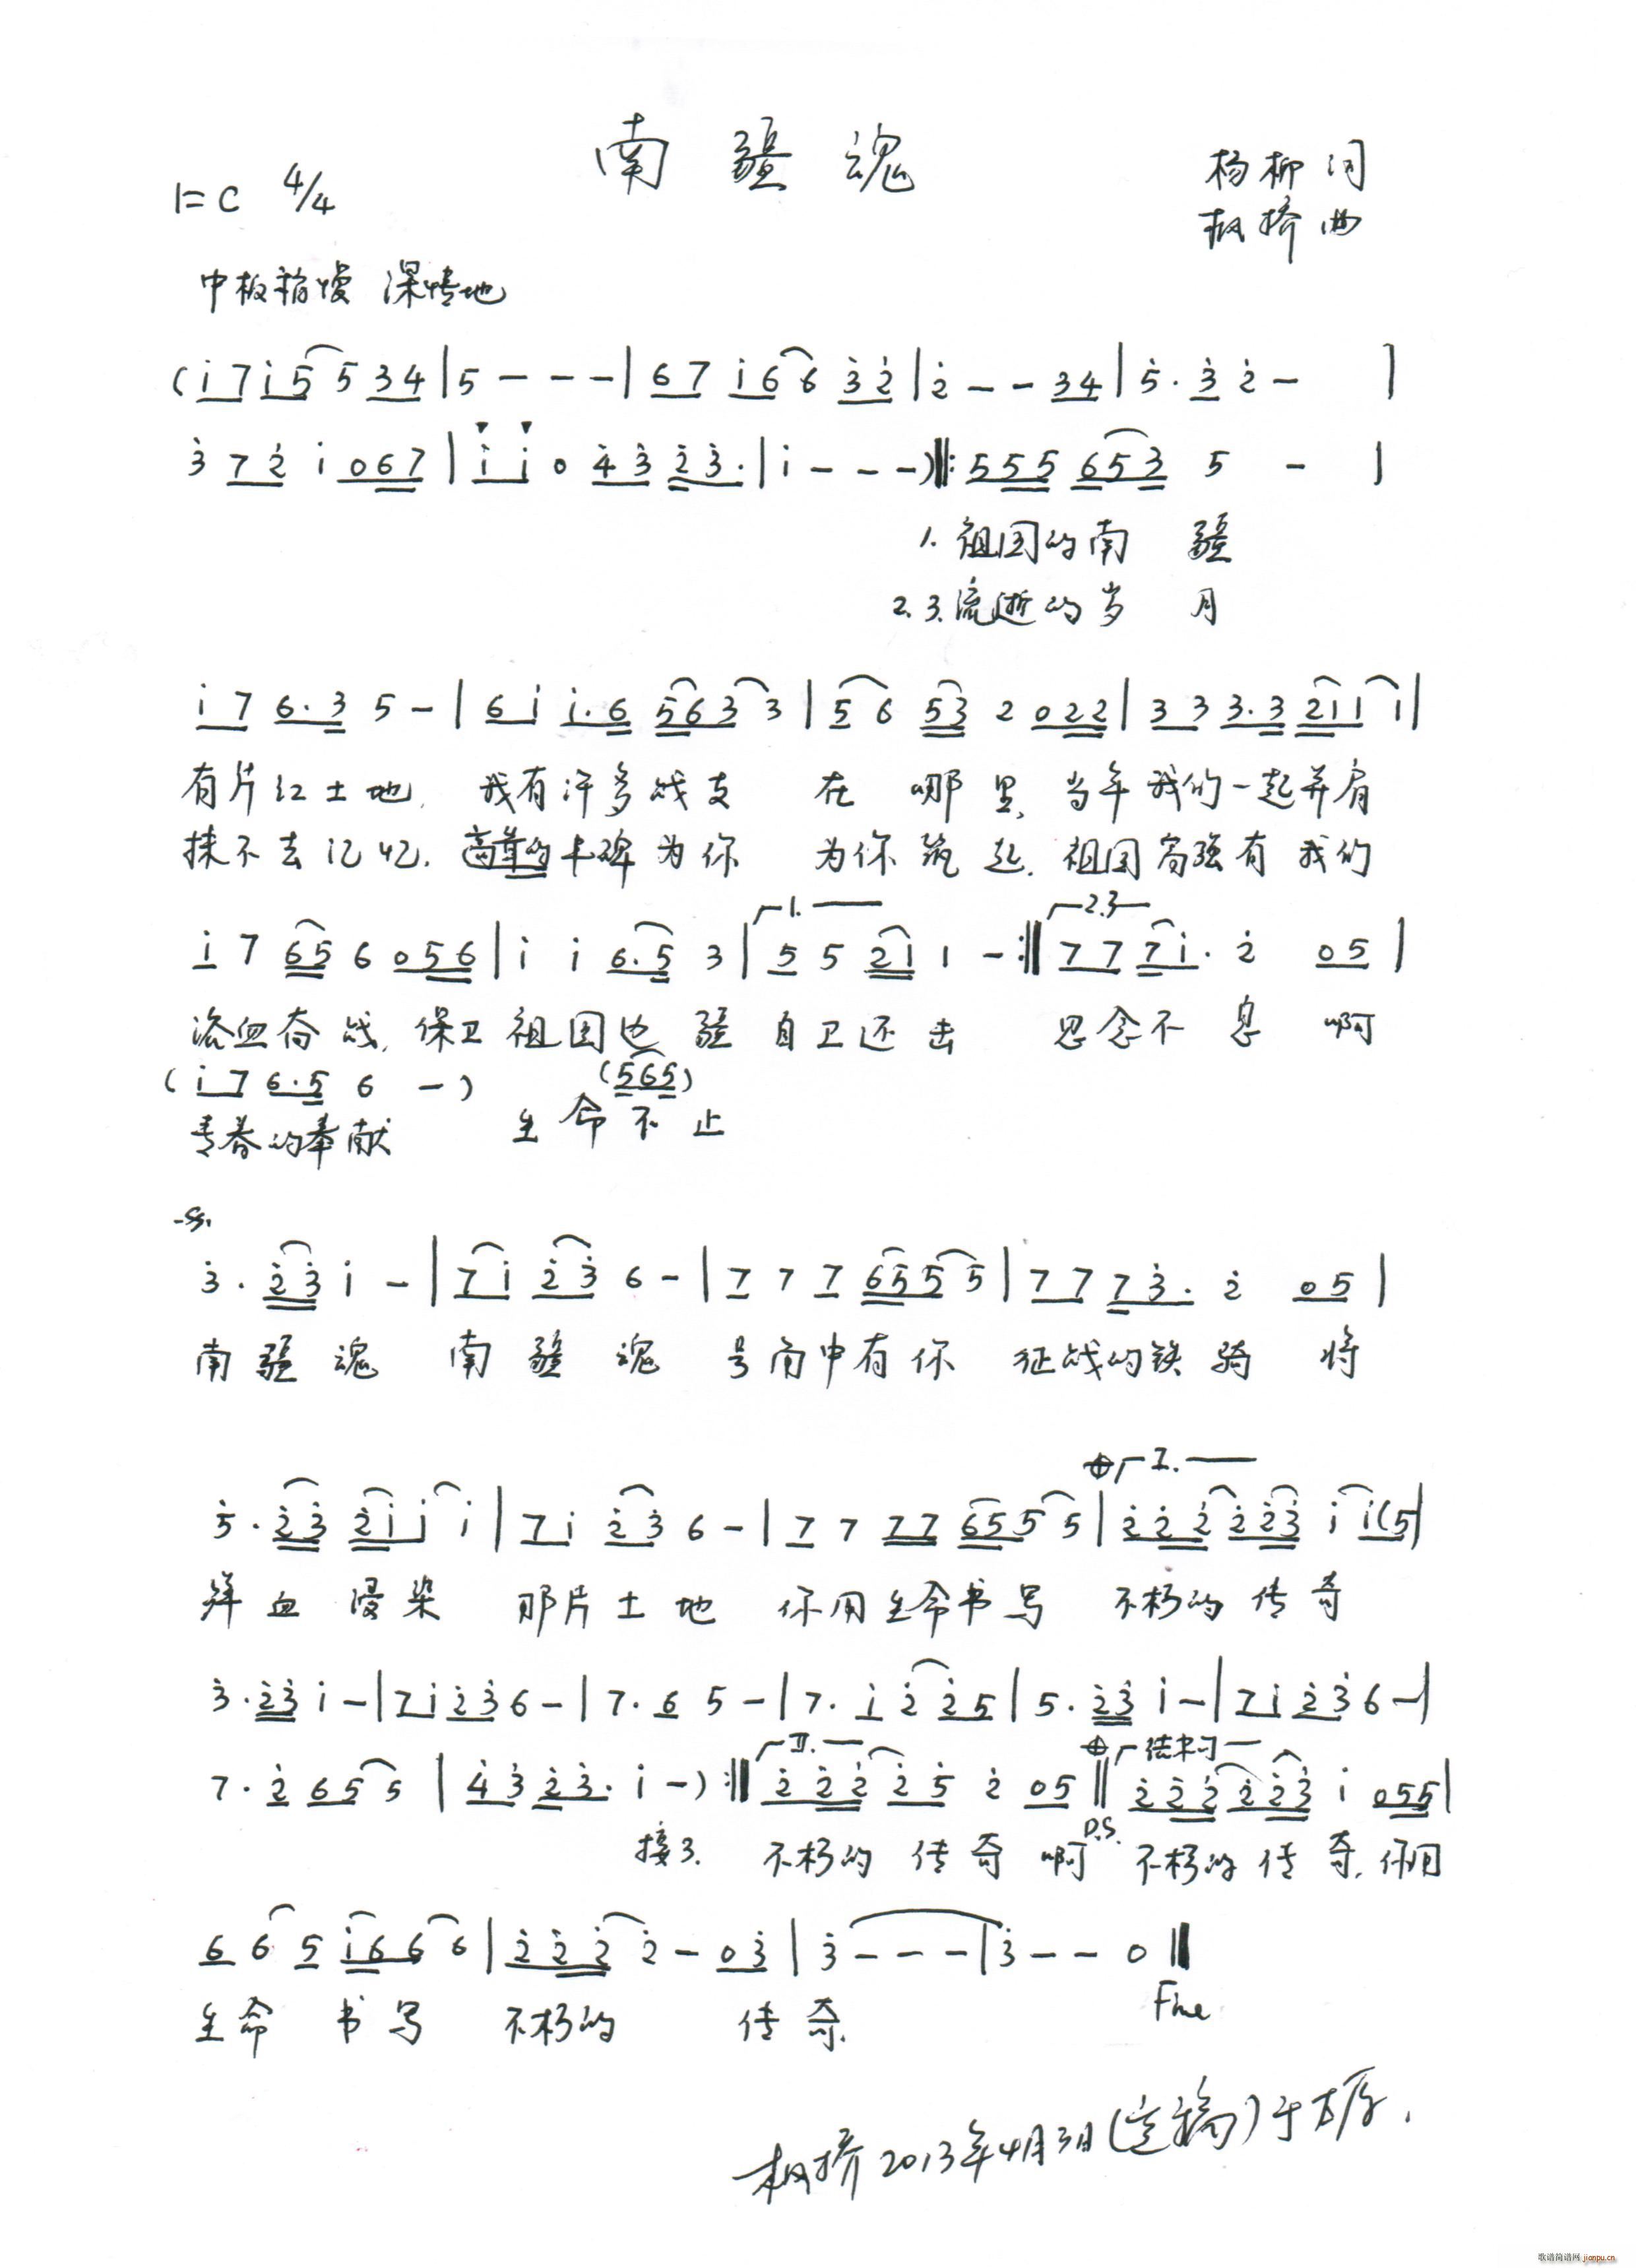 南疆魂
1=C 4/4
杨柳词
板桥曲
中板稍慢 深情地
(i 7 i 5 5 3 4 | 5 - - - | 6 7 i 6 6 3 2 | 2 - - 3 4 | 5 . 3 2 - |
3 7 2 i 0 6 7 | i i 0 4 3 2 3 . | i - - -) ‖: 5 5 5 6 5 3 5 - |
1. 祖国的南 疆
2.3. 流逝的岁 月
i 7 6 . 3 5 - | 6 i i . 6 5 6 3 3 | 5 6 5 3 2 0 2 2 | 3 3 3 . 3 2 1 1 1 |
有片红土地, 我有许多战友 在 哪里, 当年我们一起并肩
抹不去记忆, 高耸的丰碑为你 为你筑起, 祖国富强有我们
1. 2.3
i 7 6 5 6 0 5 6 | i i 6 . 5 3 | 5 5 2 1 1 - :‖ 7 7 7 i . 2 0 5 |
浴血奋战, 保卫祖国边疆 自卫还击 思念不息 啊
( i 7 6 . 5 6 - ) (5 6 5)
青春的奉献 生命不止
3 . 2 3 i - | 7 i 2 3 6 - | 7 7 7 6 5 5 5 | 7 7 7 3 . 2 0 5 |
南疆魂 南疆魂 号角中有你 征战的铁骑 将
I.
5 . 2 3 2 i i i | 7 i 2 3 6 - | 7 7 7 7 6 5 5 5 | 2 2 2 2 2 3 i i (5 |
鲜血浸染 那片土地 你用生命书写 不朽的传奇
3 . 2 3 i - | 7 i 2 3 6 - | 7 . 6 5 - | 7 . i 2 2 5 | 5 . 2 3 i - | 7 i 2 3 6 - |
II. 结束句
7 . 2 6 5 5 | 4 3 2 3 . i - ) :‖ 2 2 2 2 5 2 0 5 ‖ 2 2 2 2 2 3 i 0 5 5 |
接3. 不朽的传奇 啊 D.S. 不朽的传奇, 你用
6 6 5 i 6 6 6 | 2 2 2 2 - 0 3 | 3 - - - | 3 - - 0 ‖
生命 书写 不朽的 传奇.
Fine
板桥2013年4月3日(定稿)于太原.
歌谱简谱网 jianpu.cn